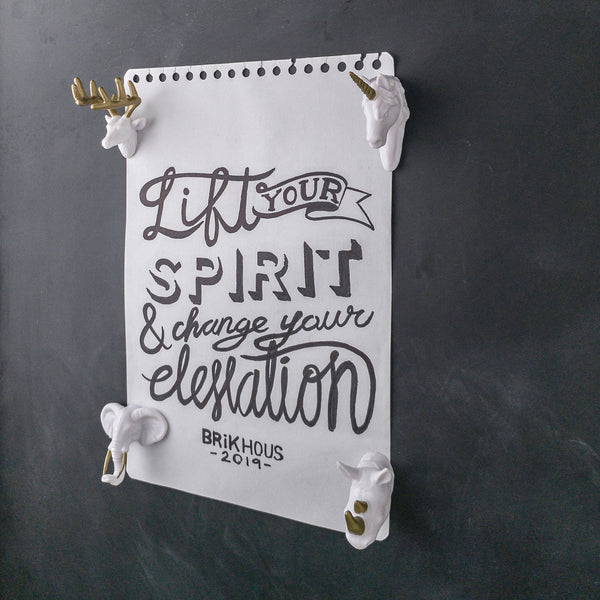 Lift YOUR
SPIRIT
& change your
elessation
BRiKHOUS
-2019-